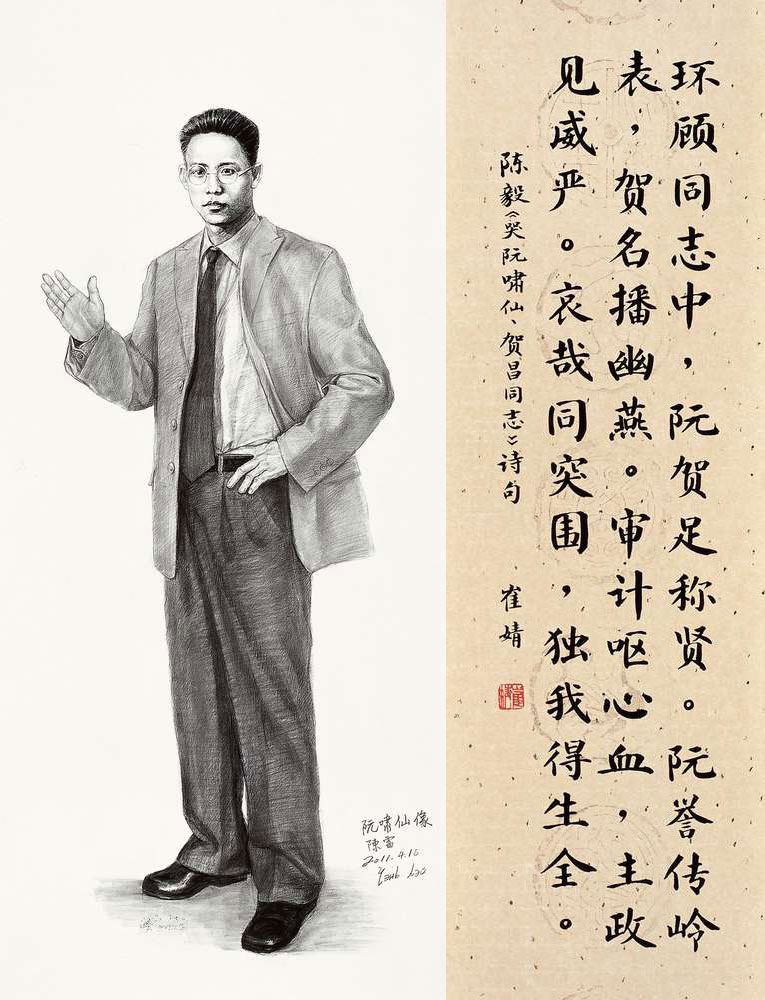 环顾同志中，阮贺足称贤。阮誉传岭
表，贺名播幽燕。审计呕心血，主政
见威严。哀哉同突围，独我得生全。
陈毅《哭阮啸仙、贺昌同志》诗句
崔婧
阮啸仙像
陈雷
2011.4.16